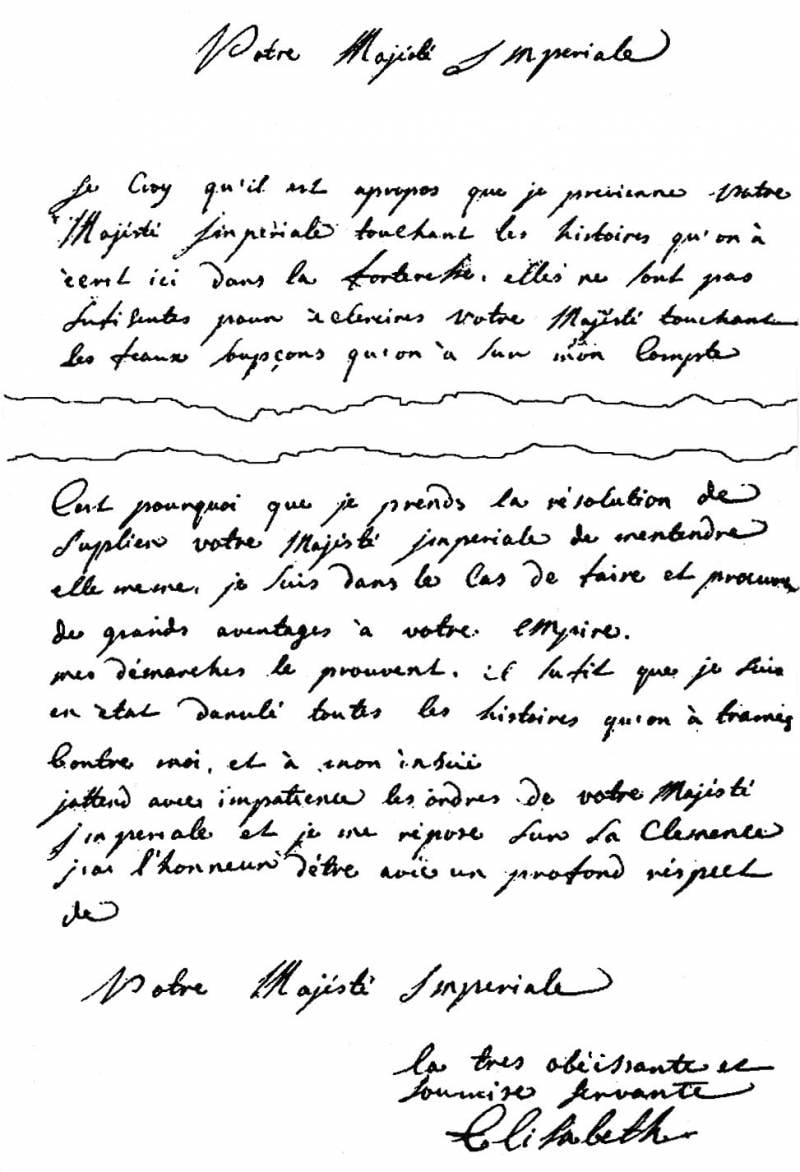 Votre Majésté Imperiale
Je Croy qu'il est apropos que je previenne votre
Majésté Imperiale touchant les histoires qu'on à
ècrit ici dans la fortereße. elles ne sont pas
sufisentes pour èclereires votre Majésté touchant
les feaux soupçons qu'on à sur mon Compte
C'est pourquoi que je prends la résolution de
suplier votre Majésté jmperiale de mentendre
elle meme, je suis dans le Cas de faire et procurer
de grands aventages à votre empire.
mes démarches le prouvent. il sufit que je suis
en ètat danulé toutes les histoires qu'on à tramés
Contre moi, et à mon insüe
jattend avec impatience les ordres de votre Majésté
jmperiale et je me répose sur sa Clemence
j'ai l'honneur d'étre avec un profond réspect
de
Votre Majésté Imperiale
la tres obéissante et
soumise servante
Elisabeth